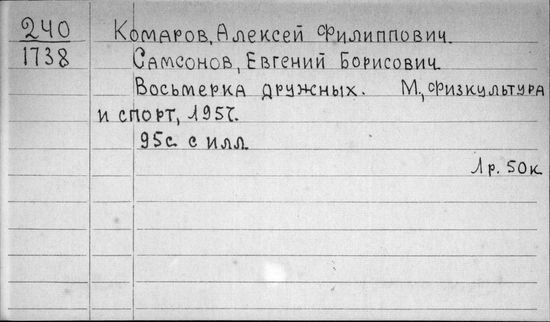 240
1738
Комаров, Алексей Филиппович.
Самсонов, Евгений Борисович.
Восьмерка дружных. М., Физкультура
и спорт, 1957.
95с. с илл.
1р. 50к.